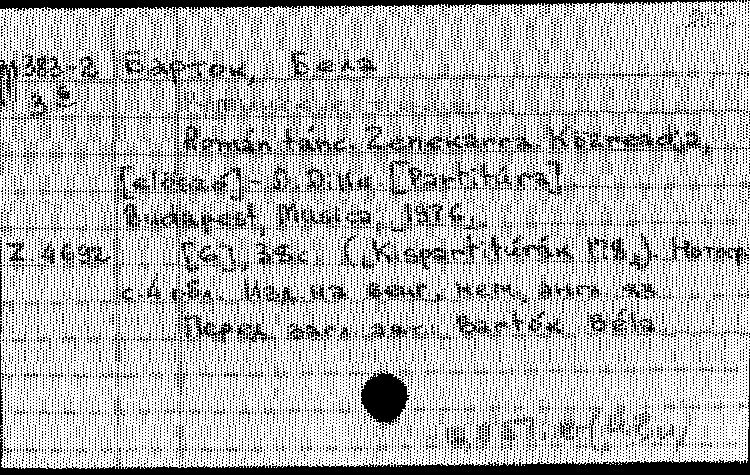 М383-2 Барток, Бела
3=
Román tánc. Zenekarra. Közreadja,
[előszó] - D. Dille. [Partitúra]
Budapest, Musica, 1976.
Z. 4692 [6], 38с. („Kispartitúrák 178„). Нотогр.
с. 4 обл. Изд. на венг., нем., англ. яз.
Перед загл. авт.: Bartók Béla